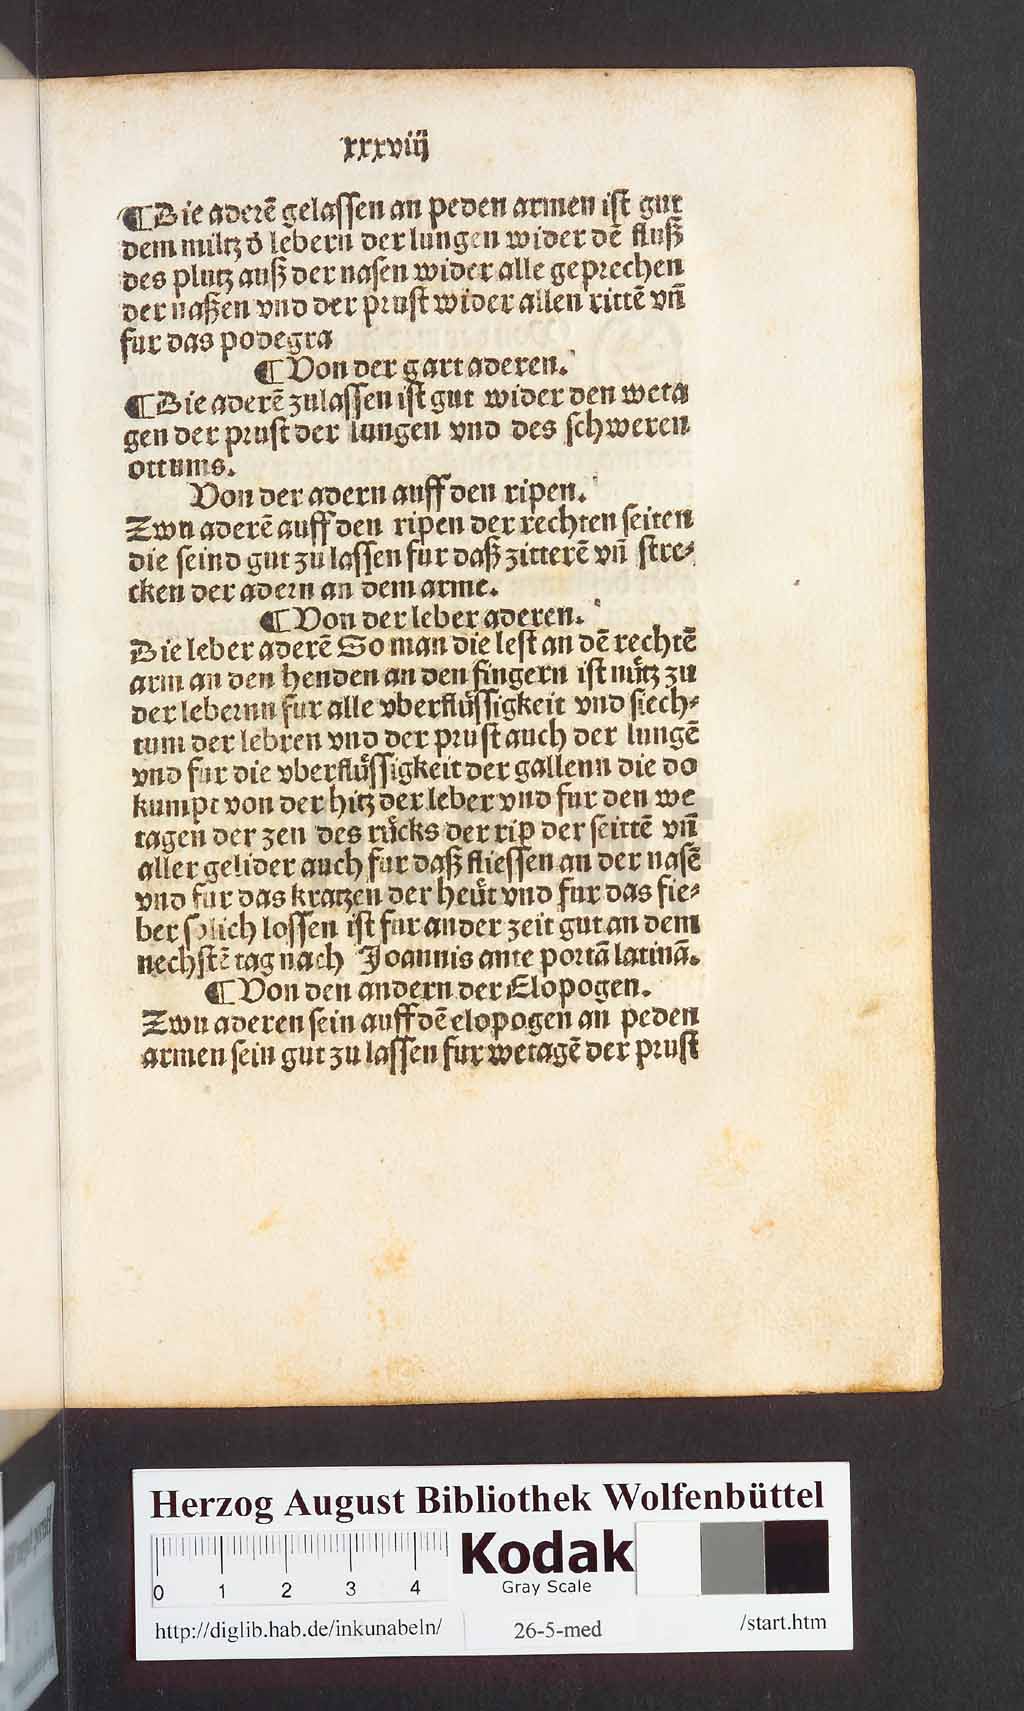 xxxviij
¶Die aderē gelassen an peden armen ist gut
dem miltz ď lebern der lungen wider dē fluß
des plutz auß der nasen wider alle geprechen
der naßen vnd der prust wider allen rittē vñ
fur das podegra
¶Von der gart aderen.
¶Die aderē zulassen ist gut wider den weta
gen der prust der lungen vnd des schweren
ottums.
Von der adern auff den ripen.
Zwu aderē auff den ripen der rechten seiten
die seind gut zu lassen fur daß zitterē vñ stre⸗
cken der adern an dem arme.
¶Von der leber aderen.
Die leber aderē So man die lest an dē rechtē
arm an den henden an den fingern ist nuͤtz zu
der lebernn fur alle vberfluͤssigkeit vnd siech⸗
tum der lebren vnd der prust auch der lungē
vnd fur die vberfluͤssigkeit der gallenn die do
kumpt von der hitz der leber vnd fur den we
tagen der zen des ruͤcks der rip der seittē vñ
aller gelider auch fur daß fliessen an der nasē
vnd fur das kratzen der heuͤt vnd fur das fie⸗
ber solich lossen ist fur ander zeit gut an dem
nechstē tag nach Joannis ante portā latinā.
¶Von den andern der Elopogen.
Zwu aderen sein auff dē elopogen an peden
armen sein gut zu lassen fur wetagē der prust
Herzog August Bibliothek Wolfenbüttel
Kodak
Gray Scale
0 1 2 3 4
http://diglib.hab.de/inkunabeln/ 26-5-med /start.htm